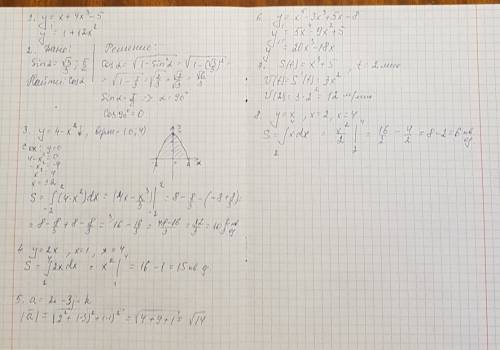 1. y = x + 4x³ - 5
y' = 1 + 12x²
2. Дано:
Sinα = √3/3; π/2
Найти: cosα
Решение:
Cosα = √1 - sin²α = √1 - (√3/3)² =
= √1 - 1/3 = √2/3 = √2/√3 = √6/3
Sinα π/2 => α = 90°
Cos 90° = 0
3. y = 4 - x² ↓, Врт - (0; 4)
с ох: y = 0
4 - x² = 0
-x² = -4
x² = 4
x = ±2
S = ∫(4 - x²)dx = (4x - x³/3)|² = 8 - 8/3 - (-8 + 8/3) =
= 8 - 8/3 + 8 - 8/3 = 16 - 16/3 = 48-16/3 = 32/3 = 10 2/3 кв ед
4. y = 2x, x = 1, x = 4
S = ∫2x dx = x²|⁴ = 16 - 1 = 15 кв ед
5. a = 2i - 3j - k
|a| = √2² + (-3)² + (-1)² = √4 + 9 + 1 = √14
6. y = x⁵ - 3x³ + 5x - 8
y' = 5x⁴ - 9x² + 5
y'' = 20x³ - 18x
7. S(t) = x³ + 5, t = 2 мин
V(t) = S'(t) = 3x²
V(2) = 3 · 2² = 12 м/мин
8. y = x, x = 2, x = 4
S = ∫x dx = x²/2 |⁴₂ = 16/2 - 4/2 = 8 - 2 = 6 кв ед